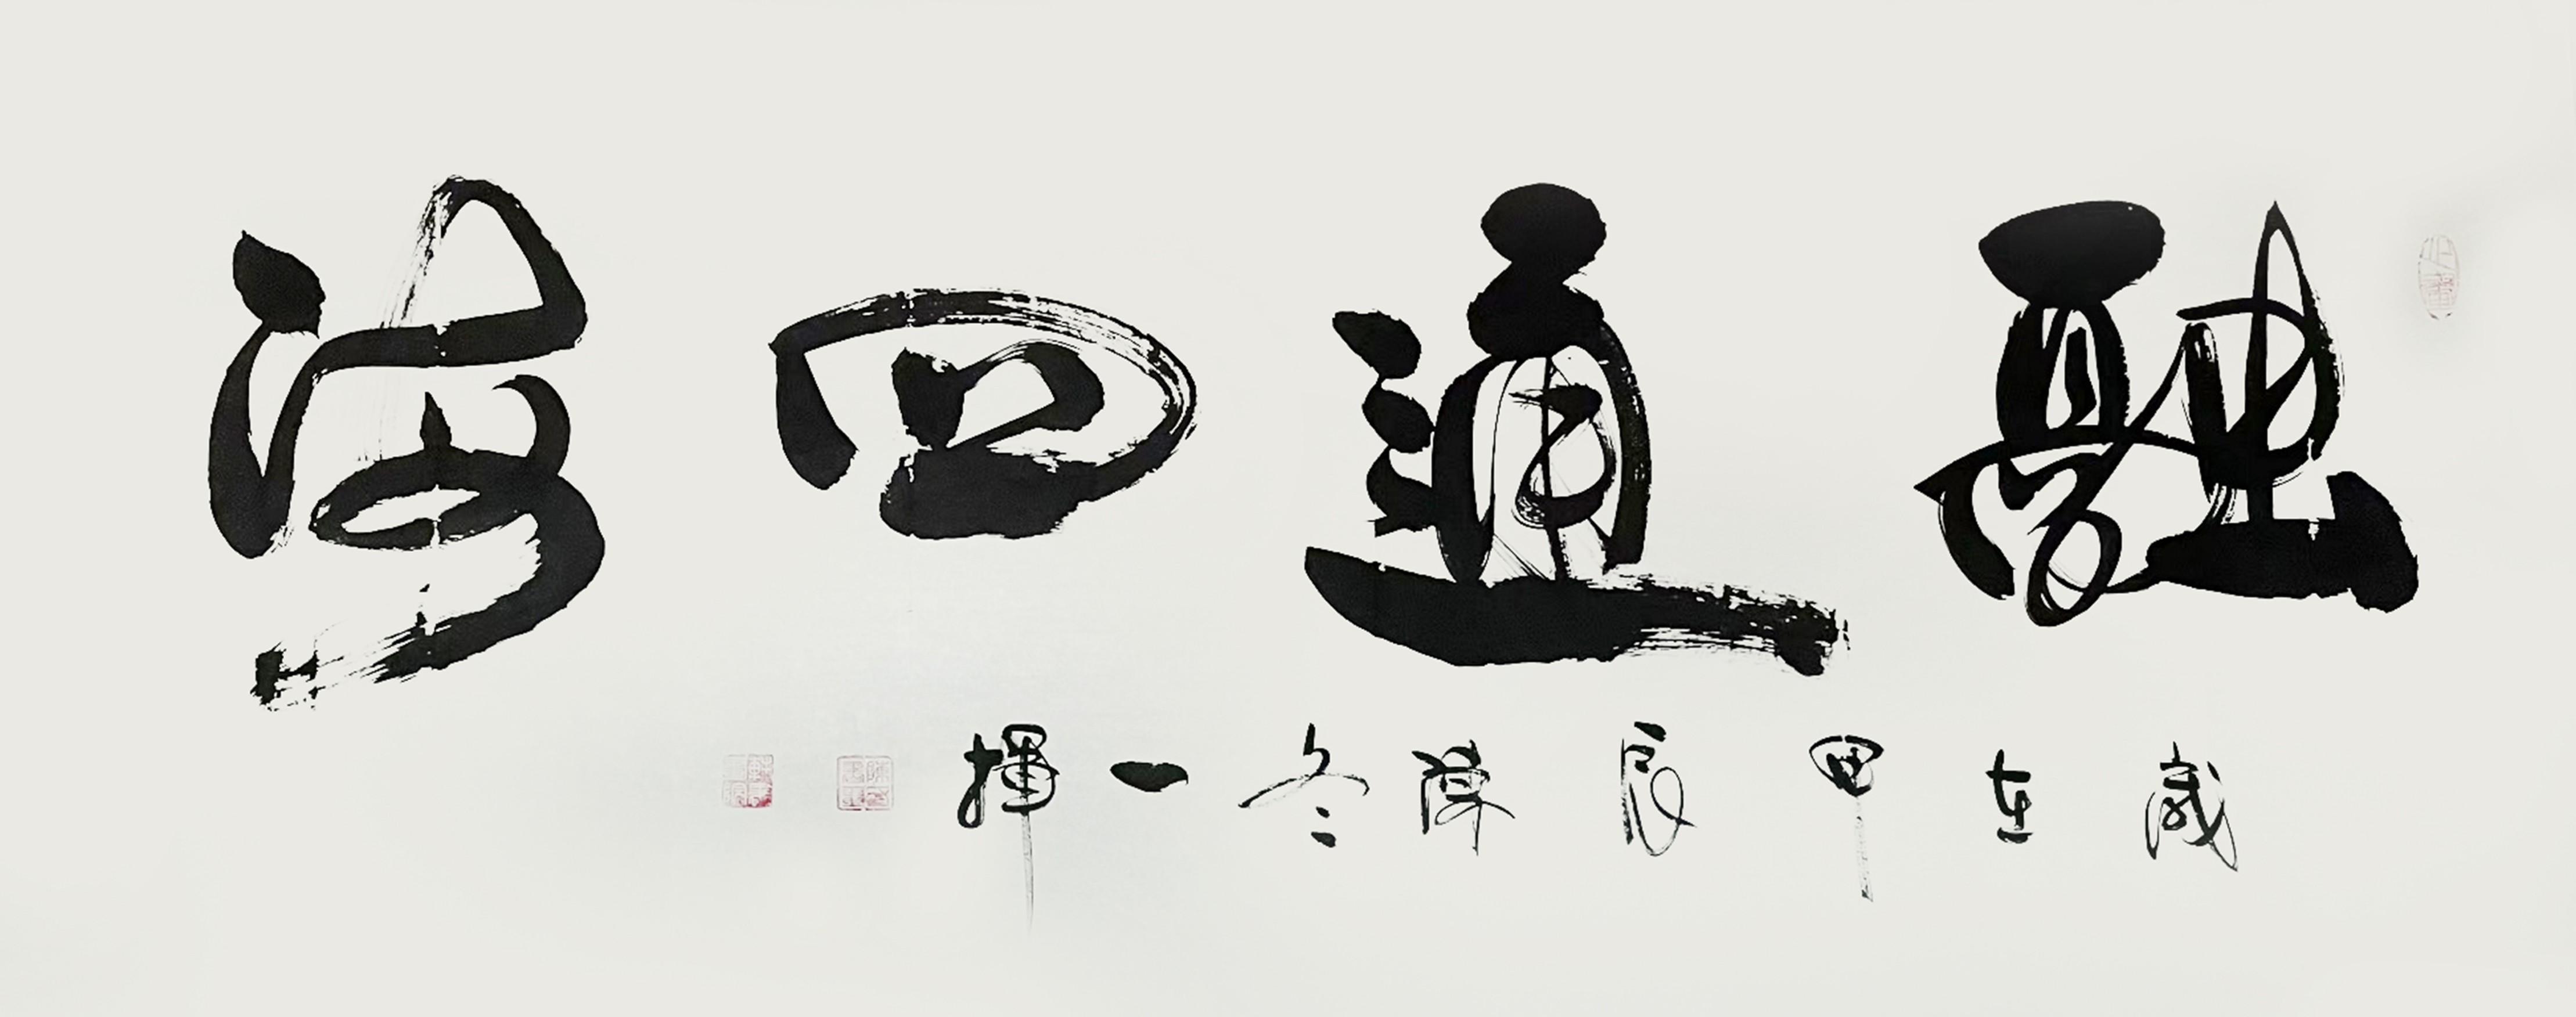 融通四海
歲在甲辰陳冬一揮